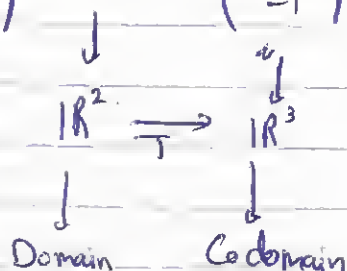 ) ( -1 )
ℝ² → ℝ³
T
Domain Codomain